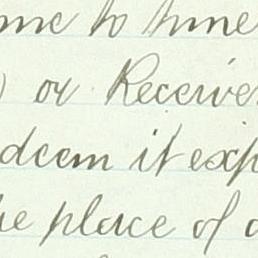 me to time
) or Receive
deem it exp
he place of